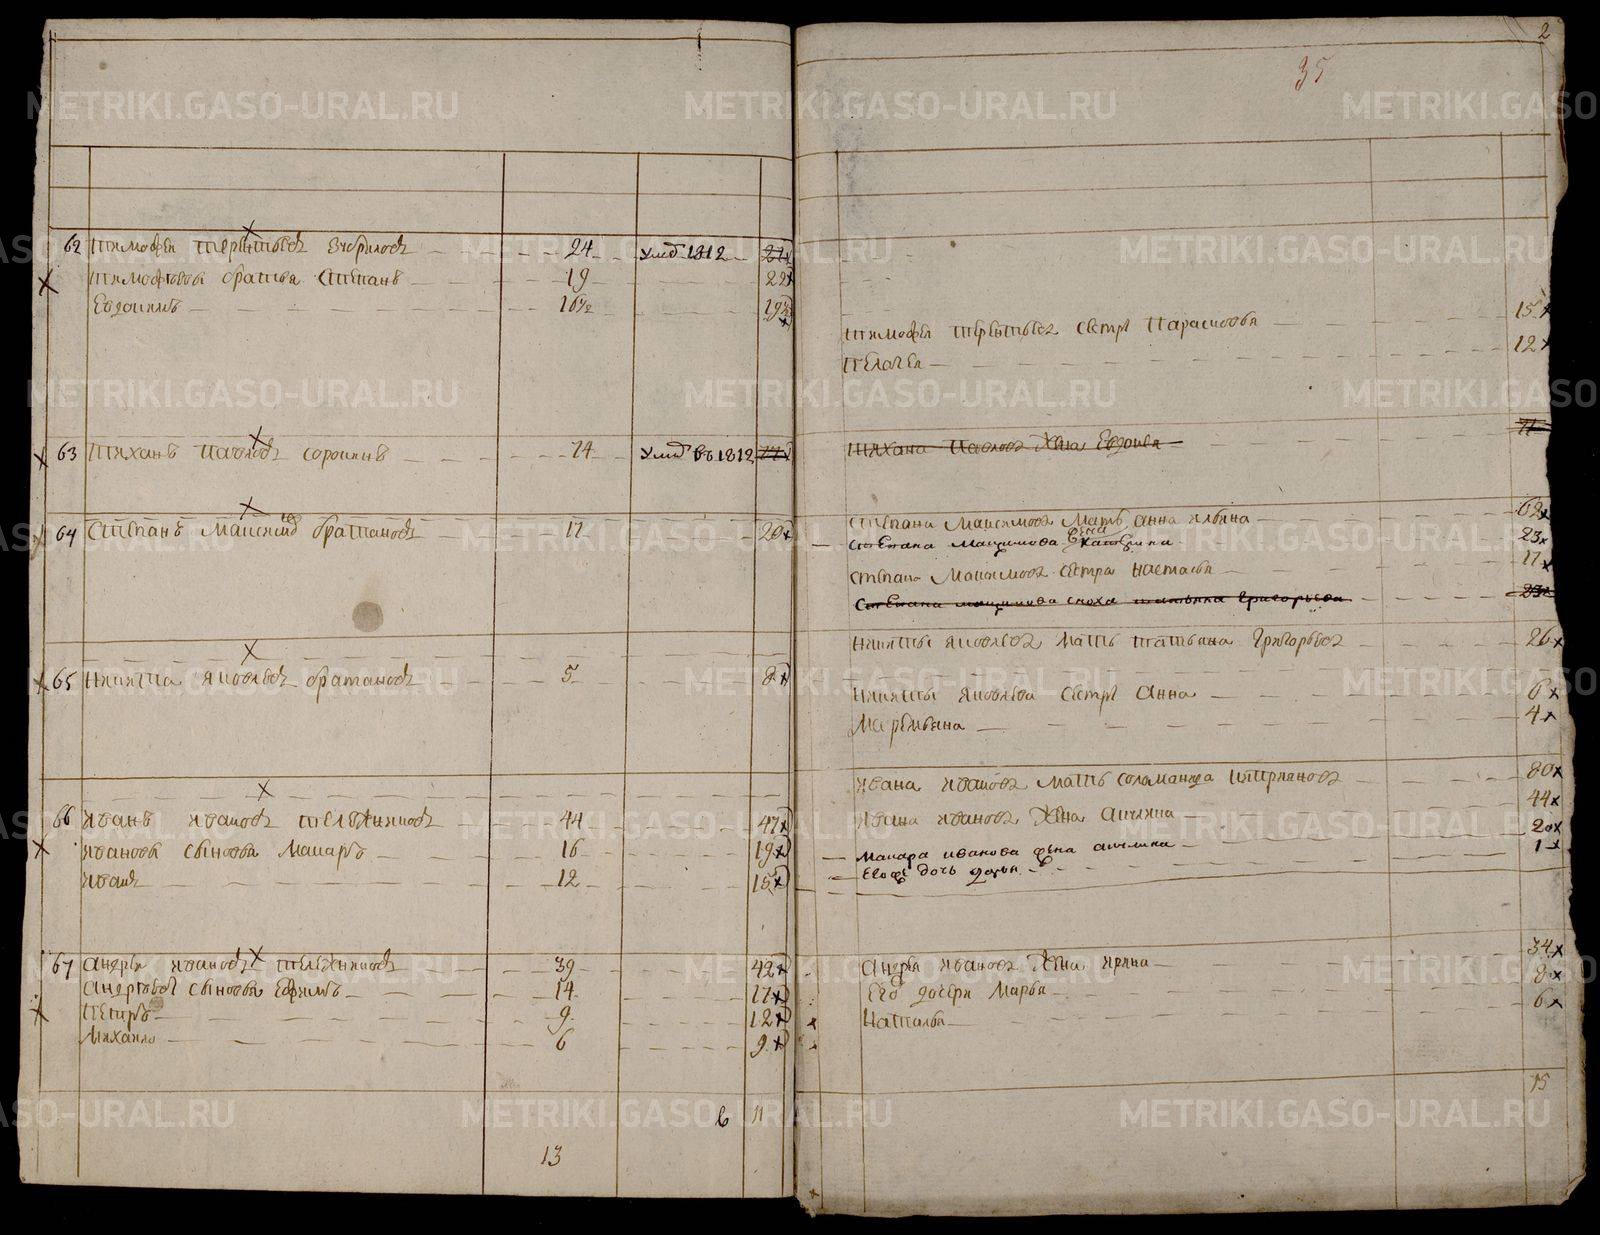 2
35
62 Тимофеи Терентьевъ 24 умре 1812 27
Тимофеевы братья Степанъ 19 22
Евдокимъ 16½ 19½
63 Тиханъ Павловъ Сорокинъ 74 умре въ 1812 77
64 Степанъ Максимовъ Братановъ 17 20
65 Никита Яковлевъ Братановъ 5 8
66 Иванъ Ивановъ Тележниковъ 44 47
Ивановы сыновья Макаръ 16 19
Иванъ 12 15
67 Андреи Ивановъ Тележниковъ 39 42
Андреевы сыновья Ефимъ 14 17
Петръ 9 12
Михаило 6 9
6 11
13
Тимофея Терентьева сестры Парасковья 15
Пелагея 12
71
Тихана Павлова жена Евдокея
Степана Максимова мать Анна Ильина 62
Степана Максимова жена Катерина 23
Степана Максимова сестра Настасья 17
Степана Максимова сноха Татьяна Григорьева 23
Никиты Яковлева мать Татьяна Григорьева 26
Никиты Яковлева сестры Анна 6
Маремьяна 4
Ивана Иванова мать Соломанида 80
Ивана Иванова жена Акилина 44
Макара Иванова жена Акилина 20
Его же дочь 1
Андрея Иванова жена Ирина 34
Его дочери Марья 8
Наталья 6
15
METRIKI.GASO-URAL.RU